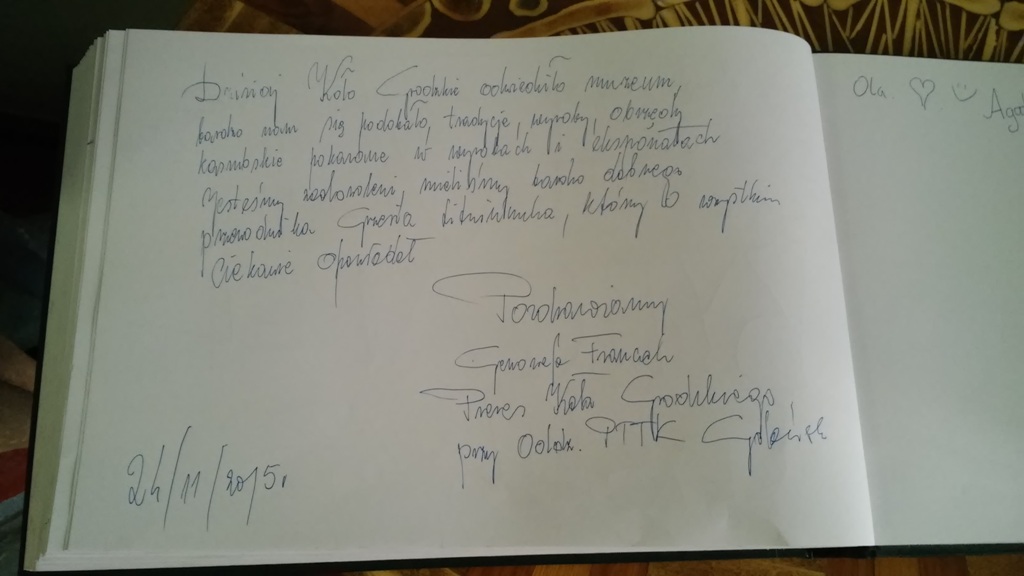 Dzisiaj Koło Grodzkie odwiedziło muzeum,
bardzo nam się podobało, tradycje, wyroby, obrzędy
kaszubskie pokazane w wyrobach i eksponatach
Jesteśmy zadowoleni, mieliśmy bardzo dobrego
przewodnika który o wszystkim
Ciekawie opowiadał
Pozdrawiamy
Genowefa
Prezes Koła Grodzkiego
przy Oddz. PTTK Gdańsk
24/11/2015.
Ola ♡ ☺